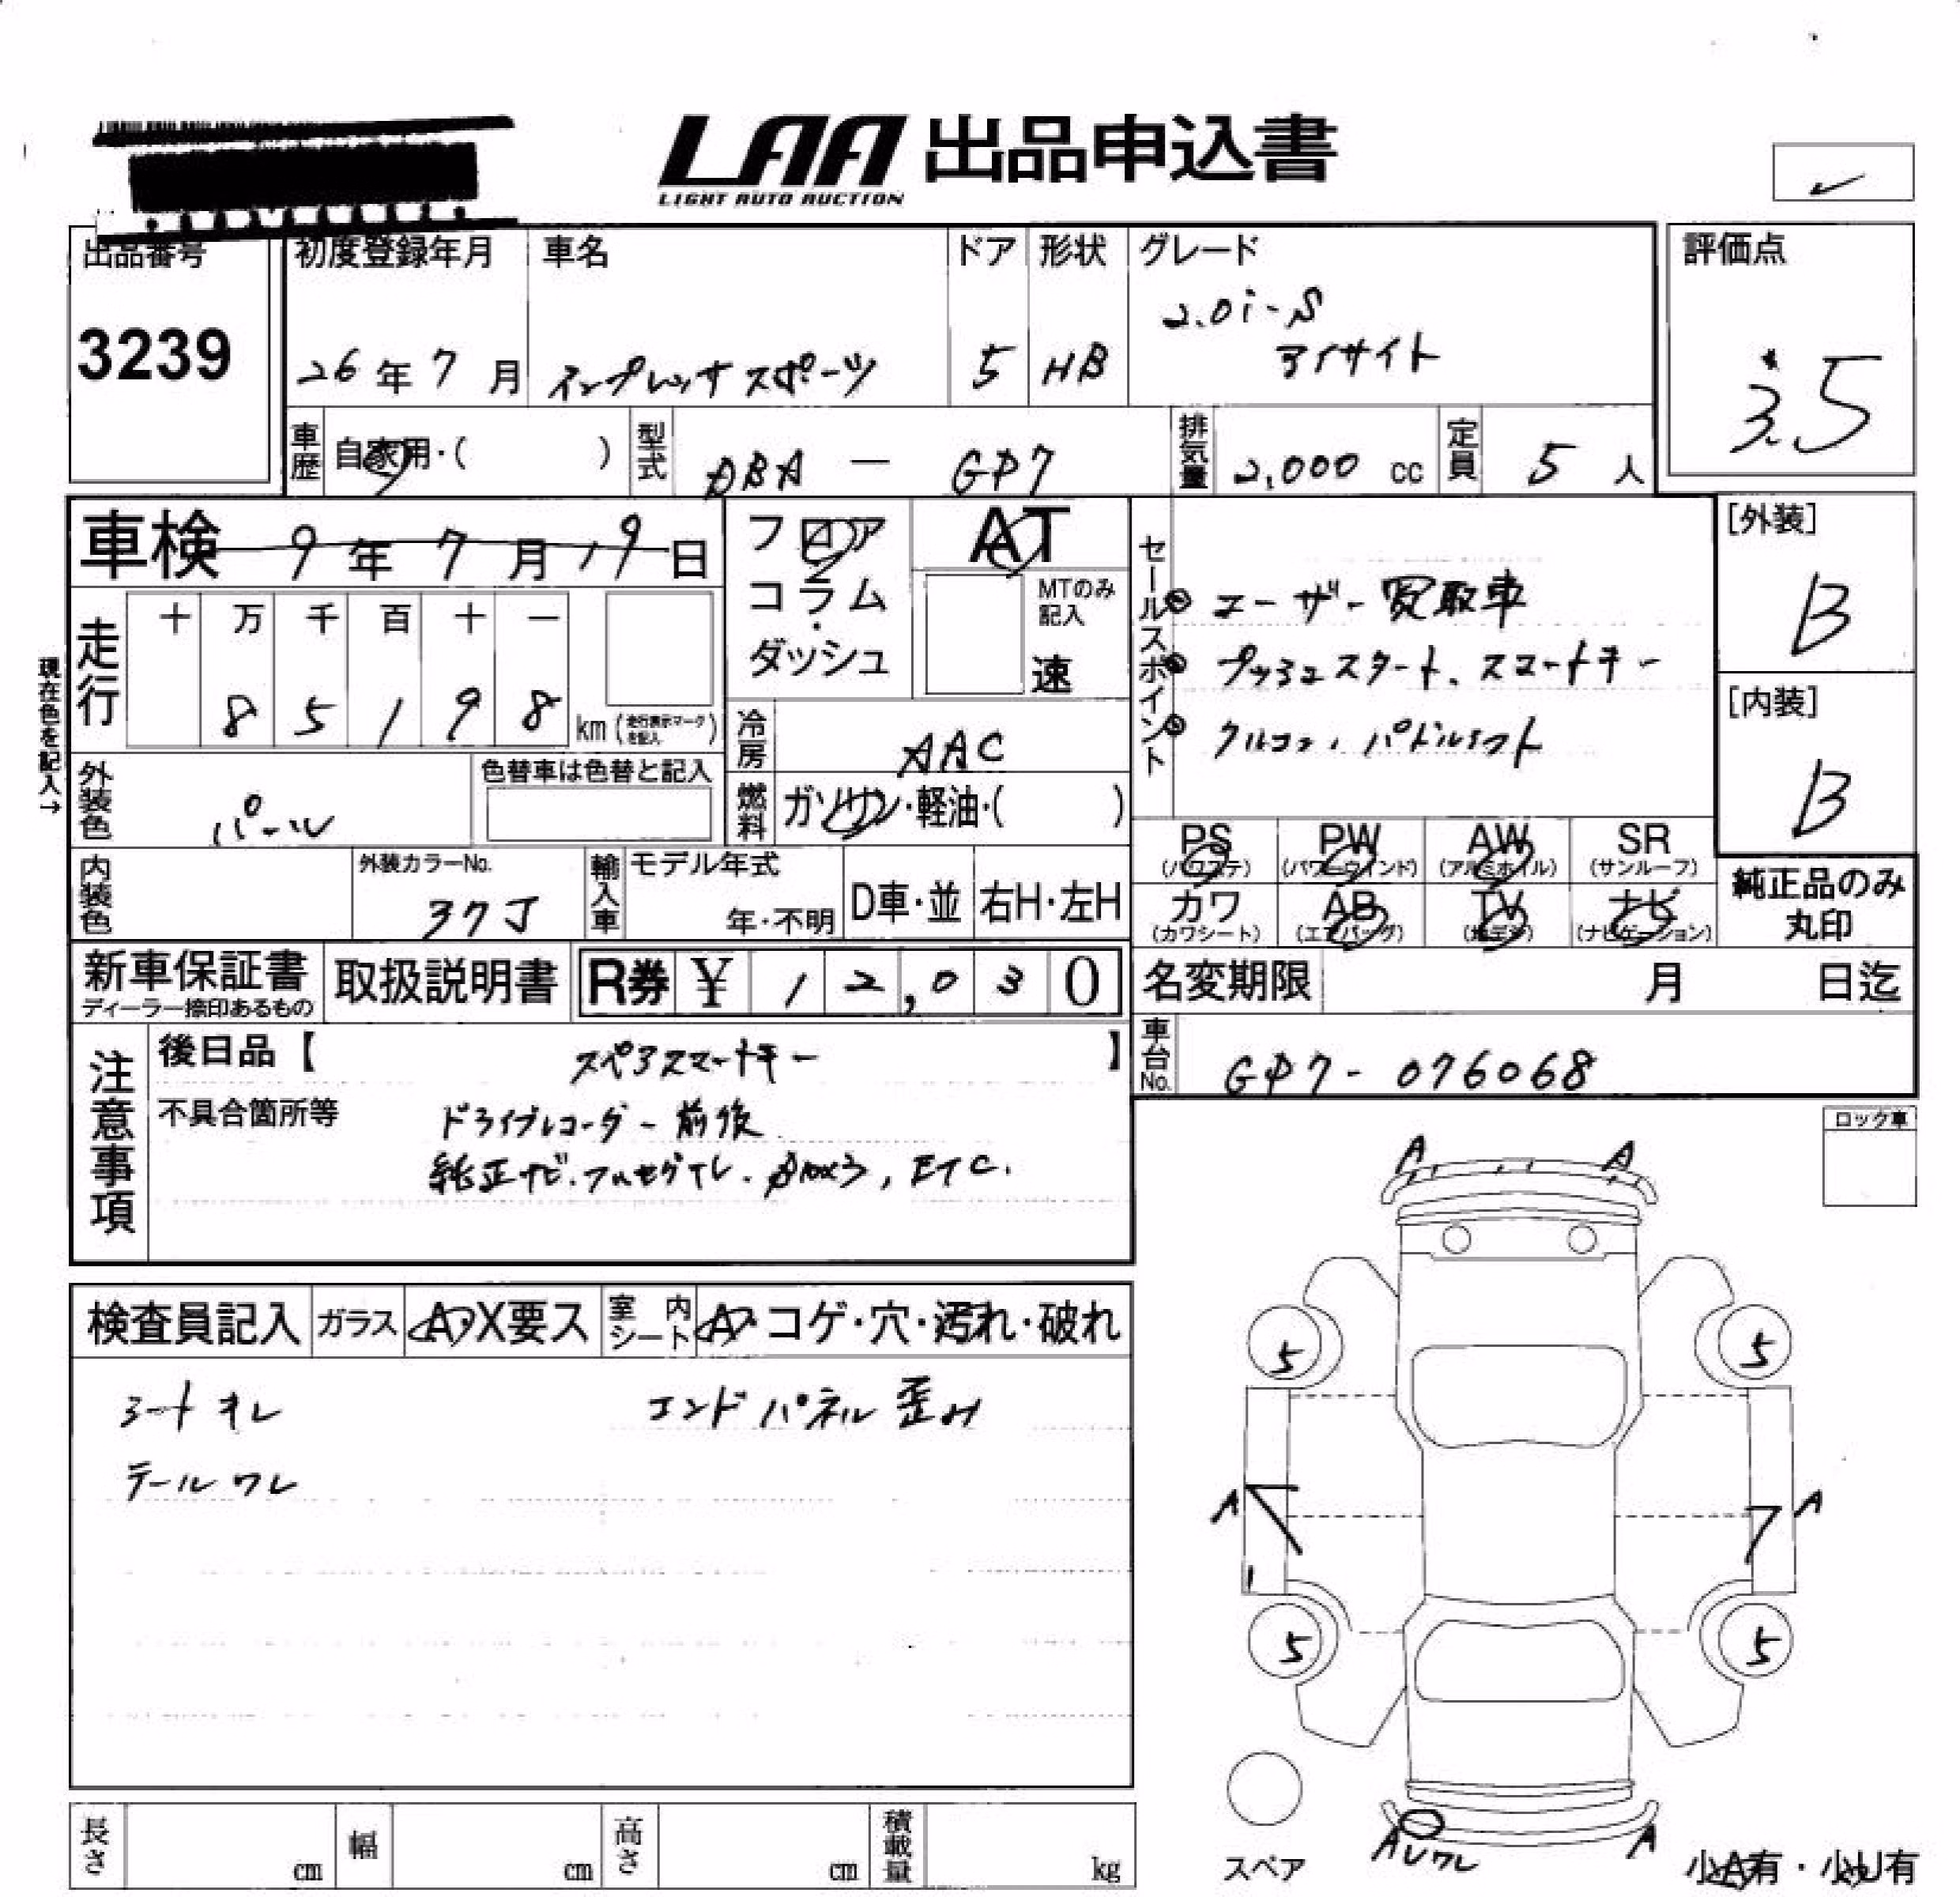 LAA 出品申込書
LIGHT AUTO AUCTION
出品番号 初度登録年月 車名 ドア 形状 グレード 評価点
3239
26年7月 インプレッサスポーツ 5 HB 2.0i-S
アイサイト
3.5
車歴 自家用・( ) 型式 DBA - GP7 排気量 2,000 cc 定員 5 人
車検 9年7月19日
フロア
コラム
ダッシュ
AT
MTのみ
記入
速
セールスポイント
ユーザー買取車
プッシュスタート、スマートキー
クルコン、パドルシフト
[外装]
B
[内装]
B
現在色を記入→
走行 十 万 千 百 十 一
8 5 1 9 8 km (走行表示マークを記入)
冷房 AAC
燃料 ガソリン・軽油・( )
外装色 パール 色替車は色替と記入
内装色 外装カラーNo. 37J 輸入車 モデル年式 年・不明 D車・並 右H・左H
PS (パワステ) PW (パワーウインド) AW (アルミホイル) SR (サンルーフ)
カワ (カワシート) AB (エアバッグ) TV (地デジ) ナビ (ナビゲーション)
純正品のみ
丸印
新車保証書 取扱説明書 R券 ¥ 12,030
ディーラー捺印あるもの
名変期限 月 日迄
車台No. GP7-076068
注意事項
後日品【 スペアスマートキー 】
不具合箇所等 ドライブレコーダー前後
純正ナビ.フルセグTV. ETC.
ロック車
検査員記入 ガラス A・X要ス 室内シート A・コゲ・穴・汚れ・破れ
シートキレ エンドパネル歪み
テールワレ
A A
5 5
A A
5 5
スペア
AUワレ A
小A有・小U有
長さ cm 幅 cm 高さ cm 積載量 kg